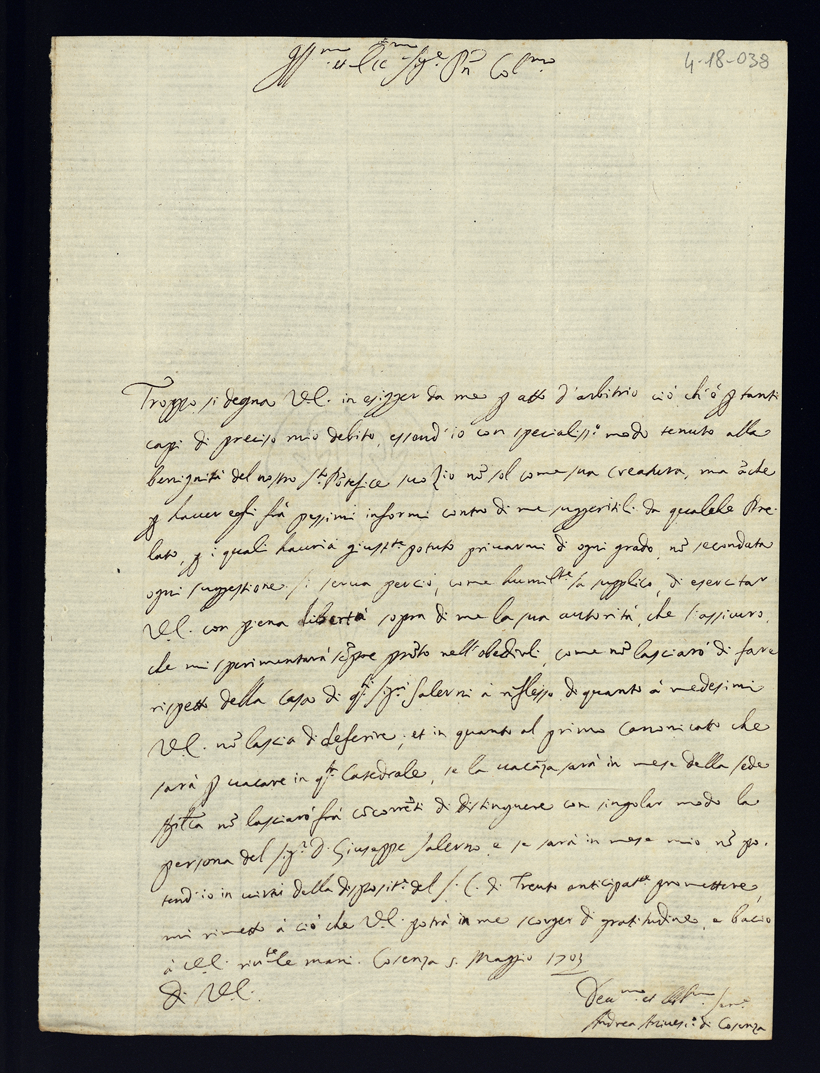 4-18-038
Ill.mo et Ecc.mo Sig.re P̃n Col.mo
Troppo si degna V.E. in esigger da me ꝑ atto d'arbitrio ciò ch'è ꝑ tanti
capi di preciso mio debito, essend'io con specialiss.o modo tenuto alla
benignità del nostro S.to Põtefice suo Zio nõ sol come sua creatura, ma ãche
ꝑ haver egli frà pessimi informi contro di me suggeritili da qualche Pre-
lato, ꝑ i quali havria giustam.te potuto privarmi di ogni grado, nõ secondata
ogni suggestione. Si serva perciò, come humilm.te la supplico, di esercitar
V.E. con piena libertà sopra di me la sua autorità, che l'assicuro,
che mi sperimentarà sẽpre prõto nell'obedirli, come nõ lasciarò di fare
rispetto della casa di q.ti Sig.ri Salerni à riflesso di quanto à medesimi
V.E. nõ lascia di deferire; et in quanto al primo Canonicato che
sarà ꝑ vacare in q.ta Catedrale, se la vacãza sarà in mese della sede
nõ lasciarò frà cõcorrẽti di distinguere con singolar modo la
persona del Sig.r D. Giuseppe Salerno, e se sarà in mese mio nõ po-
tend'io in virtù della disposit.e del S. C. di Trento anticipatam.te promettere,
mi rimetto à ciò che V.E. potrà in me scorger di gratitudine, e bacio
à V.E. riv.te le mani. Cosenza 5. Maggio 1703
Di V.E.
Dev.mo et Obl.mo Serv.
Andrea Arcivesc.o di Cosenza